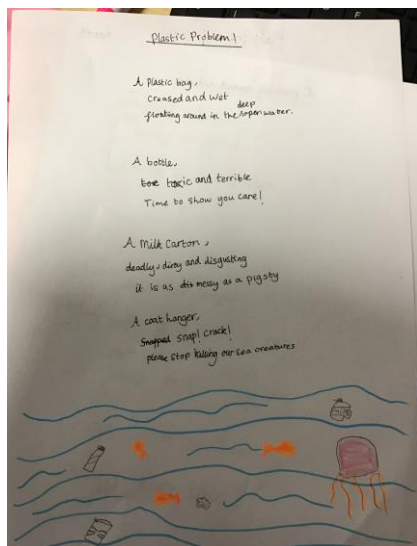 Plastic Problem!
A Plastic bag,
creased and wet
floating around in the deep open water.
A bottle,
toxic and terrible
Time to show you care!
A Milk Carton,
deadly, dirty and disgusting
it is as messy as a pigsty
A coat hanger,
snap! crack!
please stop killing our sea creatures